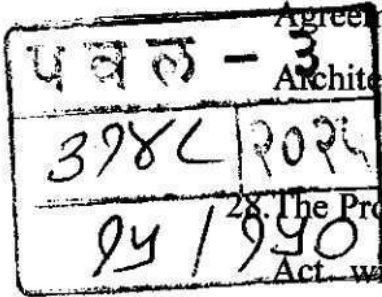 Agreem
प व ल - ३
Archite
३१४८ २०२५
28. The Pro
१५ / १५०
Act w